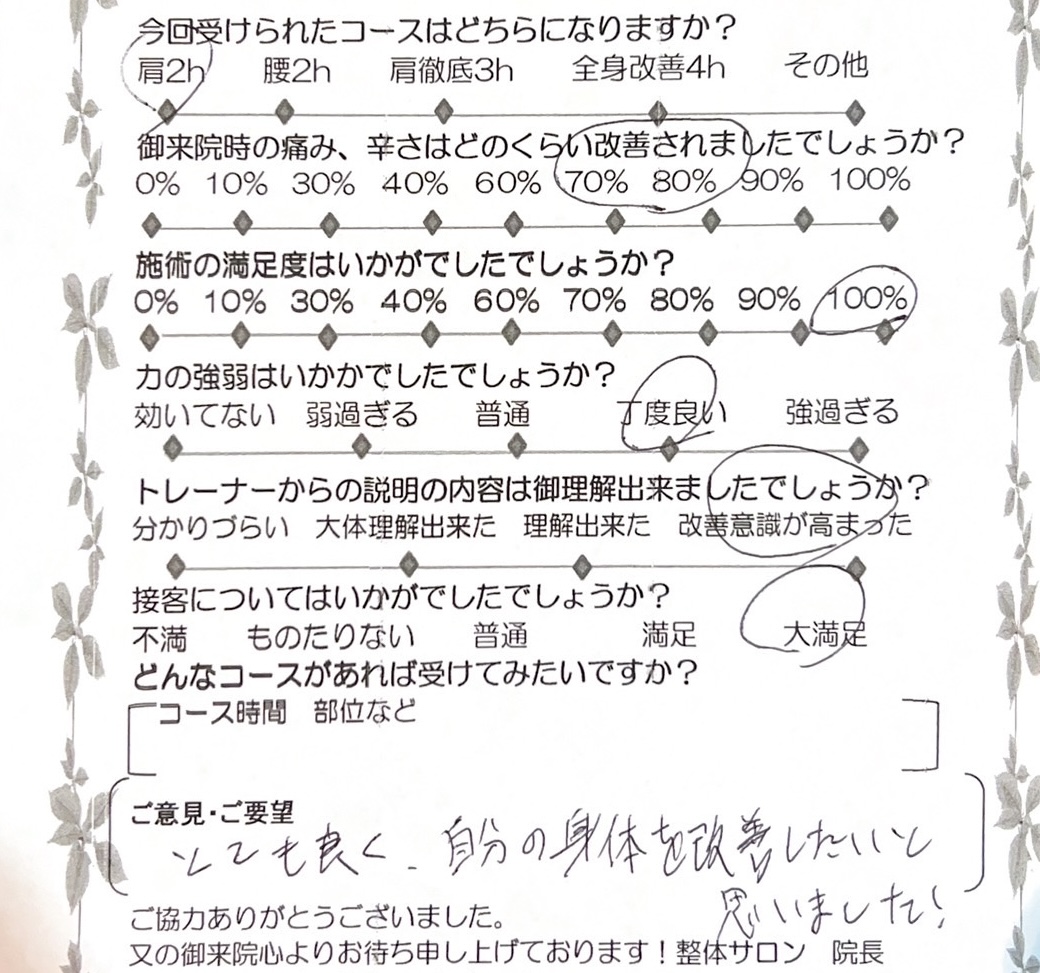 今回受けられたコースはどちらになりますか？
肩2h 腰2h 肩徹底3h 全身改善4h その他
御来院時の痛み、辛さはどのくらい改善されましたでしょうか？
0% 10% 30% 40% 60% 70% 80% 90% 100%
施術の満足度はいかがでしたでしょうか？
0% 10% 30% 40% 60% 70% 80% 90% 100%
力の強弱はいかかでしたでしょうか？
効いてない 弱過ぎる 普通 丁度良い 強過ぎる
トレーナーからの説明の内容は御理解出来ましたでしょうか？
分かりづらい 大体理解出来た 理解出来た 改善意識が高まった
接客についてはいかがでしたでしょうか？
不満 ものたりない 普通 満足 大満足
どんなコースがあれば受けてみたいですか？
コース時間 部位など
ご意見・ご要望
とても良く、自分の身体を改善したいと
思いました！
ご協力ありがとうございました。
又の御来院心よりお待ち申し上げております！整体サロン 院長